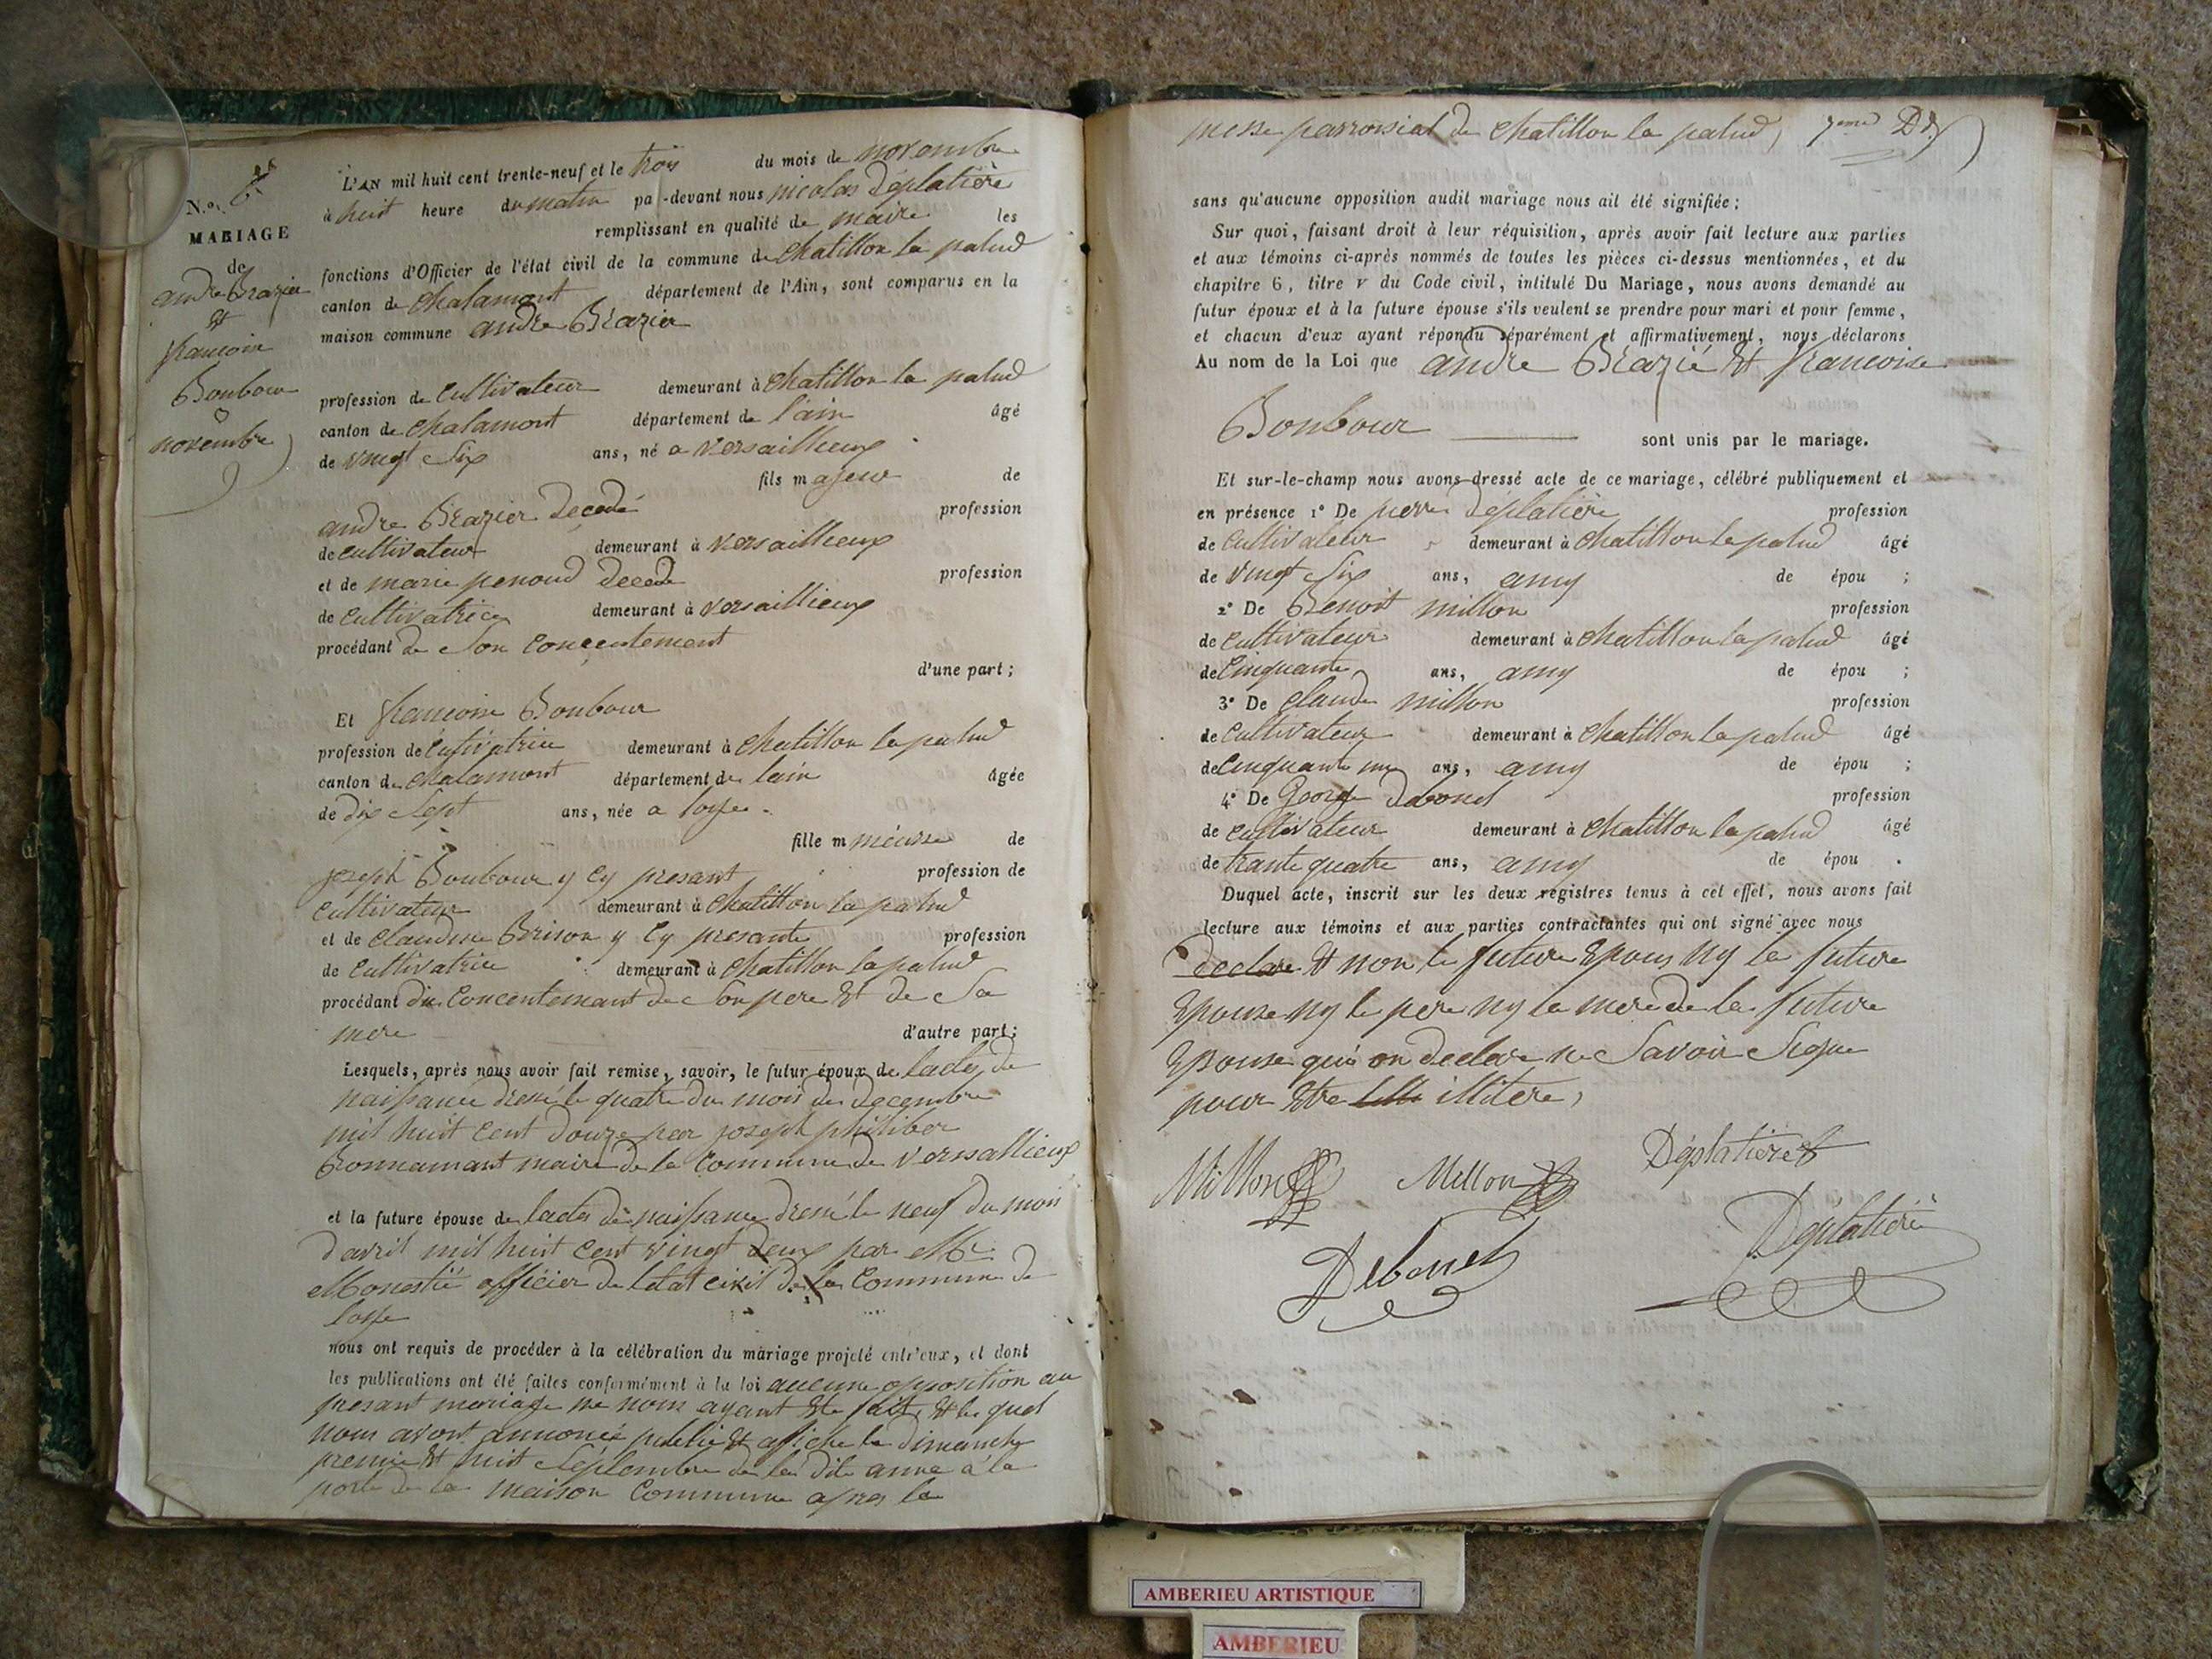 N.º 6
MARIAGE
de
andre Brazier
et
francoise
Bonbour
novembre
L'AN mil huit cent trente-neuf et le trois du mois de novembre
à huit heure du matin pa -devant nous nicolas Déplatière
remplissant en qualité de maire les
fonctions d'Officier de l'état civil de la commune de chatillon la palud
canton de chalamont département de l'Ain, sont comparus en la
maison commune andre Brazier
profession de cultivateur demeurant à chatillon la palud
canton de chalamont département de l'ain âgé
de vingt six ans, né a versaillieux
fils majeur de
andre Brazier decedé profession
de cultivateur demeurant à versaillieux
et de marie penoud decede profession
de cultivatrice demeurant à versaillieux
procédant de son concentement
d'une part;
Et francoise Bonbour
profession de cutivatrice demeurant à chatillon la palud
canton de chalamont département de lain âgée
de dix sept ans, née a loyse
fille m méure de
joseph Bonbour y cy presant profession de
cultivateur demeurant à chatillon la palud
et de claudine Brison y cy presante profession
de cultivatrice demeurant à chatillon la palud
procédant du concentemant de son pere et de sa
mere d'autre part;
Lesquels, après nous avoir fait remise, savoir, le futur époux de lacte de
naissance dressé le quatre du mois de decembre
mil huit cent douze par joseph philiber
Bonnamant maire de la commune de versallieux
et la future épouse de lacte de naissance dressé le neuf du mois
d'avril mil huit cent vingt deux par Mr
Monestié officier de letat civil de la commune de
loyse
nous ont requis de procéder à la célébration du mariage projeté entr'eux, et dont
les publications ont été faites conformément à la loi aucune opposition au
presant mariage ne nous ayant ete fait, et le quel
nous avont annoncé publié et affiche le dimanche
premie et huit septembre de la dite anne a la
porte de la maison commune apres la
messe parroisial de chatillon la palud,
sans qu'aucune opposition audit mariage nous ait été signifiée;
Sur quoi, faisant droit à leur réquisition, après avoir fait lecture aux parties
et aux témoins ci-après nommés de toutes les pièces ci-dessus mentionnées, et du
chapitre 6, titre V du Code civil, intitulé Du Mariage, nous avons demandé au
futur époux et à la future épouse s'ils veulent se prendre pour mari et pour femme,
et chacun d'eux ayant répondu séparément et affirmativement, nous déclarons
Au nom de la Loi que andre Brazié et francoise
Bonbour sont unis par le mariage.
Et sur-le-champ nous avons dressé acte de ce mariage, célébré publiquement et
en présence 1º De pierre déplatière profession
de cultivateur demeurant à chatillon la palud âgé
de vingt six ans, amy de épou ;
2º De Benoit millon profession
de cultivateur demeurant à chatillon la palud âgé
de cinquante ans, amy de épou ;
3º De claude millon profession
de cultivateur demeurant à chatillon la palud âgé
de cinquante un ans, amy de épou ;
4º De George debonet profession
de cultivateur demeurant à chatillon la palud âgé
de trante quatre ans, amy de épou .
Duquel acte, inscrit sur les deux registres tenus à cet effet, nous avons fait
lecture aux témoins et aux parties contractantes qui ont signé avec nous
declare et non le future Epous ny la future
Epouse ny le pere ny la mere de la future
Epouse qui on declare ne savoir signe
pour etre illitere,
Millon Millon Déplatieret
Debonet Déplatière
AMBERIEU ARTISTIQUE
AMBERIEU